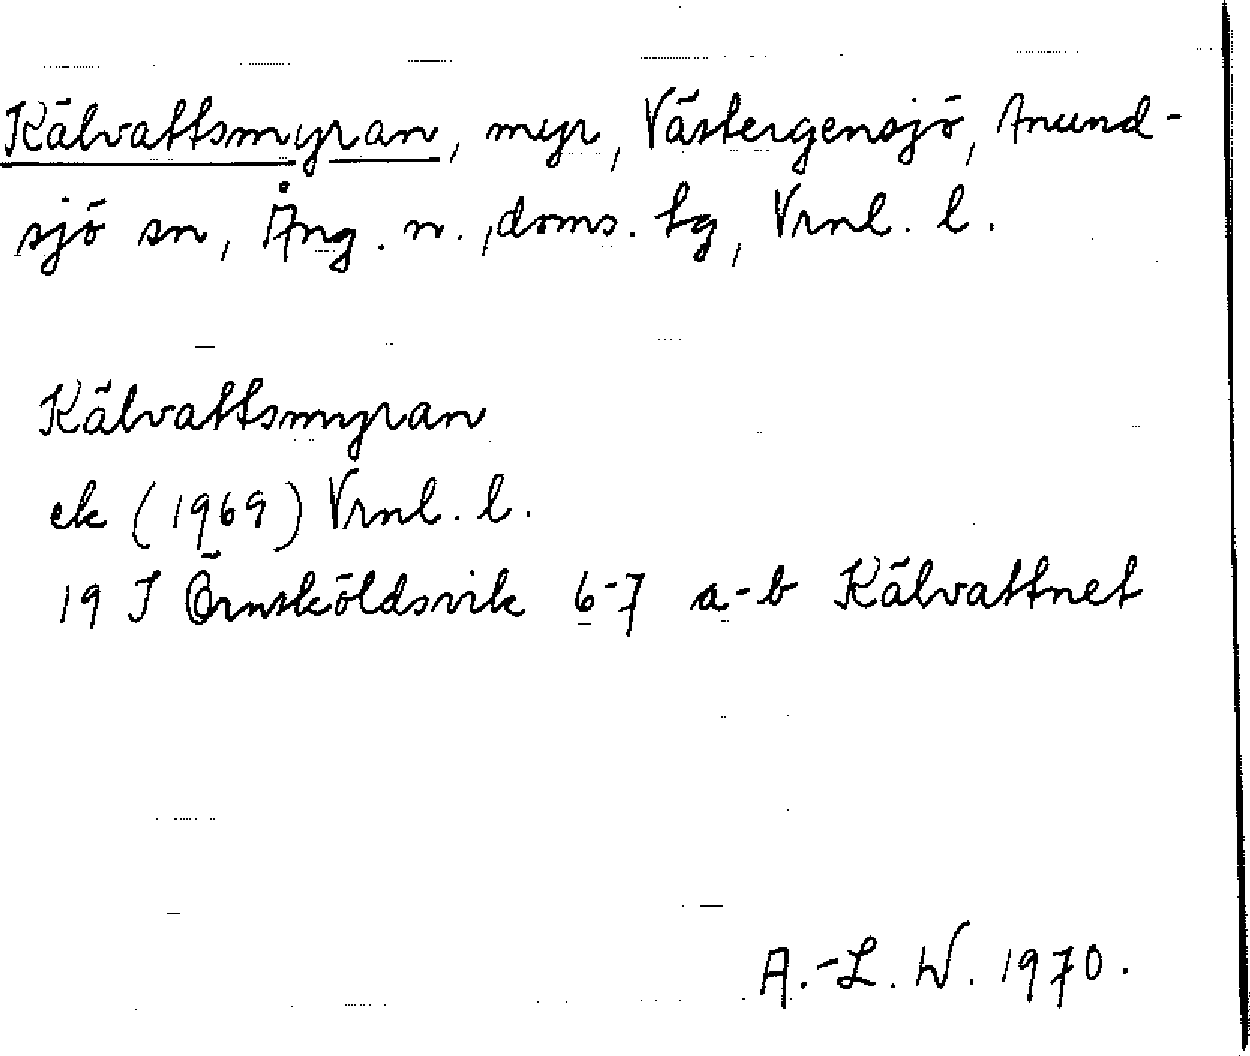 Kälvattsmyran, myr, Västergensjö, Anund-
sjö sn, Ång. n., doms. tg, Vrnl. l.
Kälvattsmyran
ek (1969) Vrnl. l.
19 J Örnsköldsvik 6-7 a-b Kälvattnet
A.-L. W. 1970.